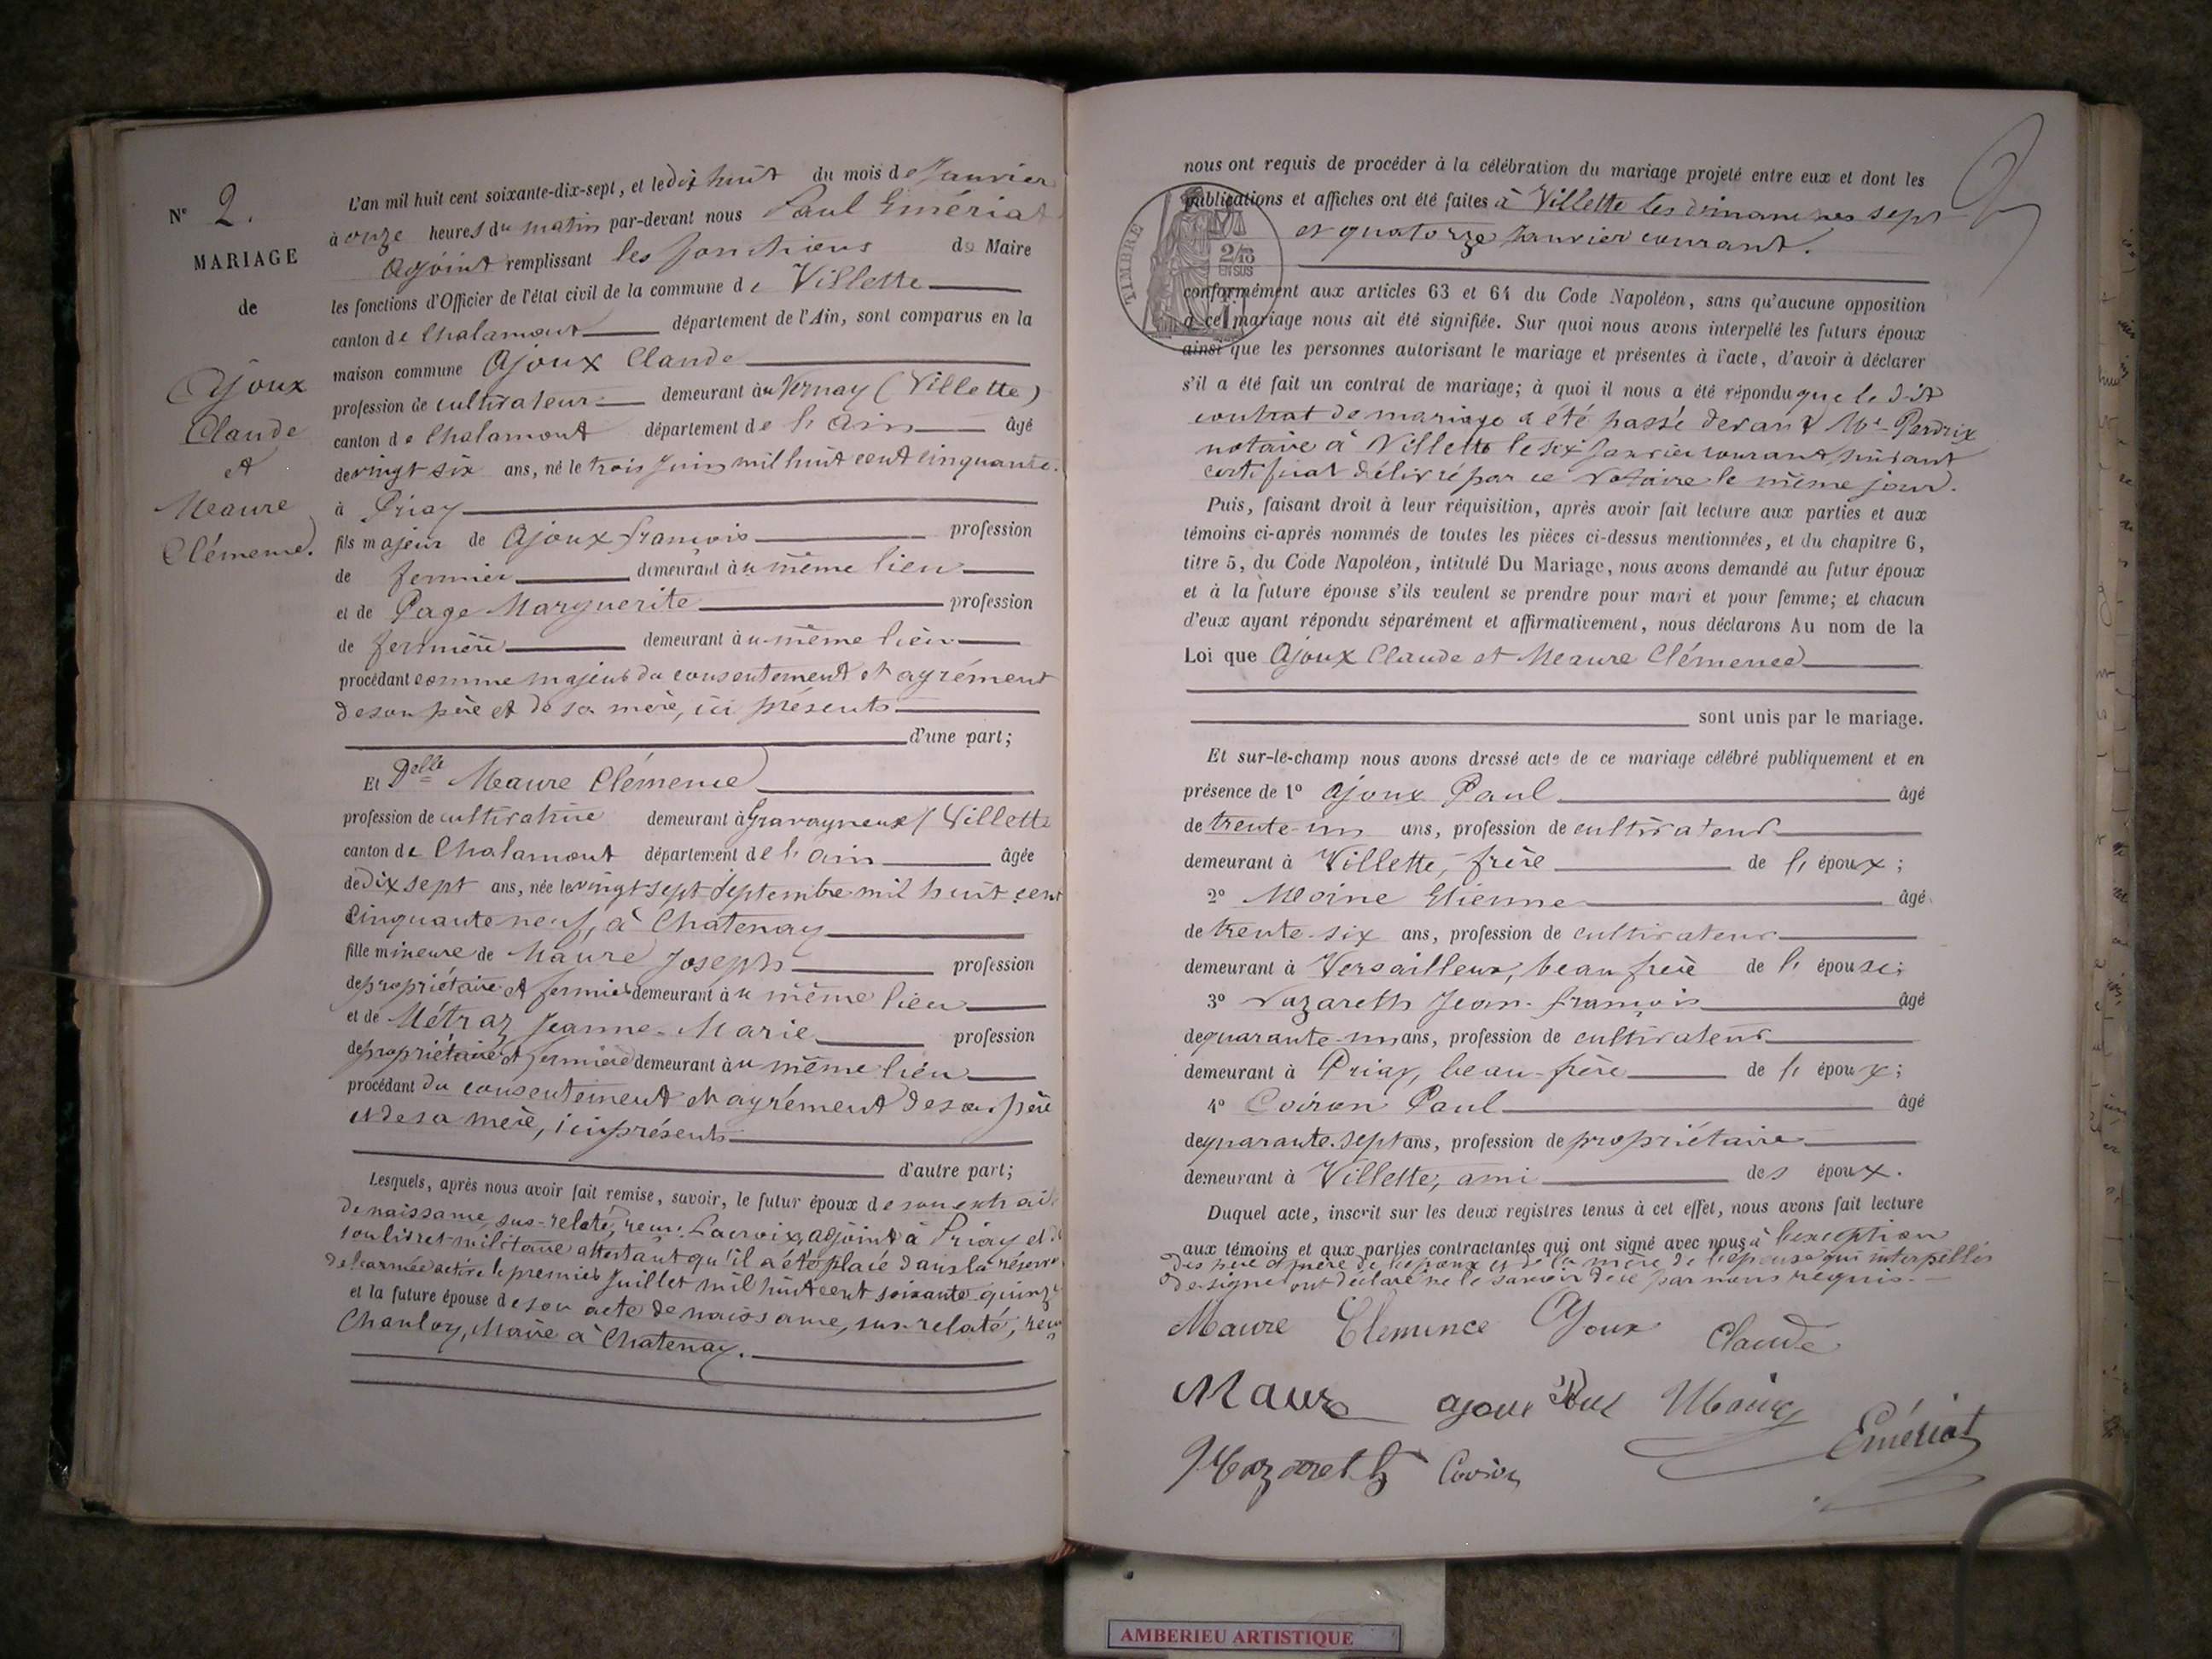 Nº 2.
MARIAGE
de
Ajoux
Claude
et
Meaure
Clémence.
L'an mil huit cent soixante-dix-sept, et le dix huit du mois de Janvier
à onze heures du matin par-devant nous Paul Emériat
Adjoint remplissant les fonctions de Maire
les fonctions d'Officier de l'état civil de la commune de Villette
canton de Chalamont département de l'Ain, sont comparus en la
maison commune Ajoux Claude
profession de cultivateur demeurant au Vernay (Villette)
canton de Chalamont département de l'Ain âgé
de vingt six ans, né le trois Juin mil huit cent cinquante.
à Priay
fils majeur de Ajoux françois profession
de fermier demeurant au même lieu
et de Page Marguerite profession
de fermière demeurant au même lieu
procédant comme majeur du consentement et agrément
de son père et de sa mère, ici présents
d'une part;
Et Delle Meaure Clémence
profession de cultivatrice demeurant à Gravagneux / Villette
canton de Chalamont département de l'ain âgée
de dix sept ans, née le vingt sept Septembre mil huit cent
cinquante neuf, à Chatenay
fille mineure de Maure Joseph profession
de propriétaire et fermier demeurant au même lieu
et de Métraz Jeanne-Marie profession
de propriétaire et fermière demeurant au même lieu
procédant du consentement et agrément de son père
et de sa mère, ici présents
d'autre part;
Lesquels, après nous avoir fait remise, savoir, le futur époux de son extrait
de naissance, sus-relaté, Lacroix, adjoint à Priay et de
son livret militaire attestant qu'il a été placé dans la réserve
de l'armée active le premier Juillet mil huit cent soixante quinze
et la future épouse de son acte de naissance, sus-relaté,
Chanloz, Maire à Chatenay.
nous ont requis de procéder à la célébration du mariage projeté entre eux et dont les
publications et affiches ont été faites à Villette les dimanches sept
et quatorze Janvier courant.
TIMBRE
2/10
EN SUS
conformément aux articles 63 et 64 du Code Napoléon, sans qu'aucune opposition
à ce mariage nous ait été signifiée. Sur quoi nous avons interpellé les futurs époux
ainsi que les personnes autorisant le mariage et présentes à l'acte, d'avoir à déclarer
s'il a été fait un contrat de mariage; à quoi il nous a été répondu que le dit
contrat de mariage a été passé devant Me Perdrix
notaire à Villette le six Janvier courant, suivant
certificat délivré par ce Notaire le même jour.
Puis, faisant droit à leur réquisition, après avoir fait lecture aux parties et aux
témoins ci-après nommés de toutes les pièces ci-dessus mentionnées, et du chapitre 6,
titre 5, du Code Napoléon, intitulé Du Mariage, nous avons demandé au futur époux
et à la future épouse s'ils veulent se prendre pour mari et pour femme; et chacun
d'eux ayant répondu séparément et affirmativement, nous déclarons Au nom de la
Loi que Ajoux Claude et Meaure Clémence
sont unis par le mariage.
Et sur-le-champ nous avons dressé acte de ce mariage célébré publiquement et en
présence de 1º Ajoux Paul âgé
de trente-un ans, profession de cultivateur
demeurant à Villette, frère de l'époux;
2º Moine Etienne âgé
de trente-six ans, profession de cultivateur
demeurant à Versailleux, beau frère de l'épouse;
3º Nazareth Jean-françois âgé
de quarante-un ans, profession de cultivateur
demeurant à Priay, beau-frère de l'époux;
4º Coiron Paul âgé
de quarante-sept ans, profession de propriétaire
demeurant à Villette, ami des époux.
Duquel acte, inscrit sur les deux registres tenus à cet effet, nous avons fait lecture
aux témoins et aux parties contractantes qui ont signé avec nous à l'exception
des père et mère de l'époux et de la mère de l'épouse qui interpellés
de signer ont déclaré ne le savoir de ce par nous requis.
Maure Clémence Ajoux Claude
Maure ajoux Paul Moine
Nazareth Coiron Emériat
AMBERIEU ARTISTIQUE